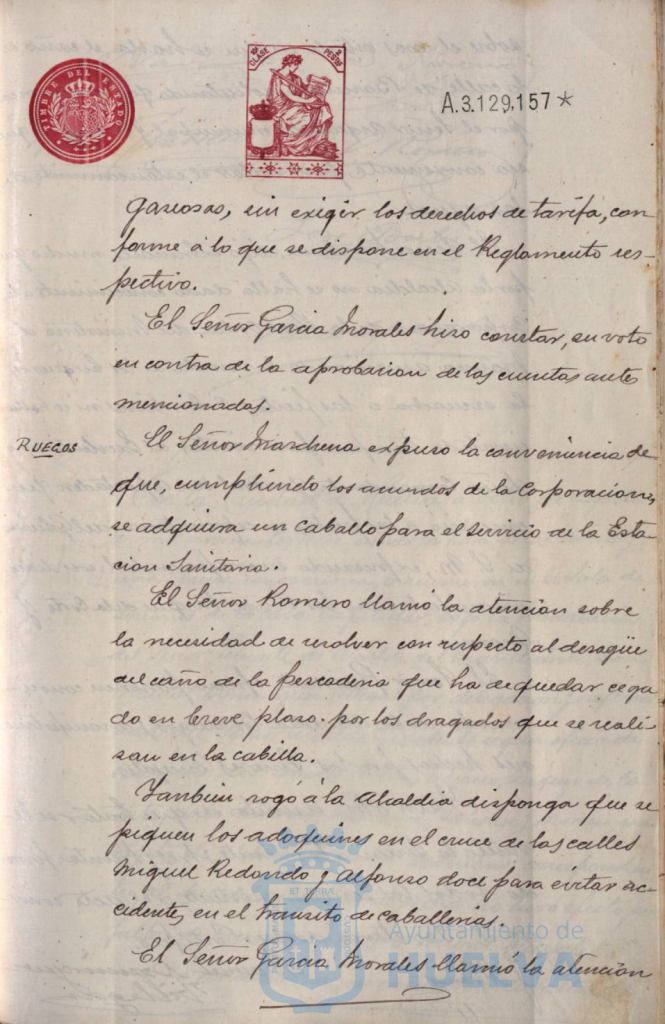 TIMBRE DEL ESTADO
CLASE 10ª 2 PESETAS
A.3.129,157*
gaseosas, sin exigir los derechos de tarifa, con
forme á lo que se dispone en el Reglamento res-
pectivo.
El Señor Garcia Morales hizo constar, su voto
en contra de la aprobacion de las cuentas antes
mencionadas.
RUEGOS
El Señor Marchena expuso la conveniencia de
que, cumpliendo los acuerdos de la Corporacion,
se adquiera un caballo para el servicio de la Esta-
cion Sanitaria.
El Señor Romero llamó la atencion sobre
la necesidad de resolver con respecto al desagüe
del caño de la Pescaderia que ha de quedar cega
do en breve plaso. por los dragados que se reali
san en la cabilla.
Tambien rogó á la Alcaldia disponga que se
piquen los adoquines en el cruce de las calles
Miguel Redondo y Alfonso doce para evitar ac-
cidentes, en el transito de caballerias.
El Señor Garcia Morales llamó la atención
Ayuntamiento de
HUELVA